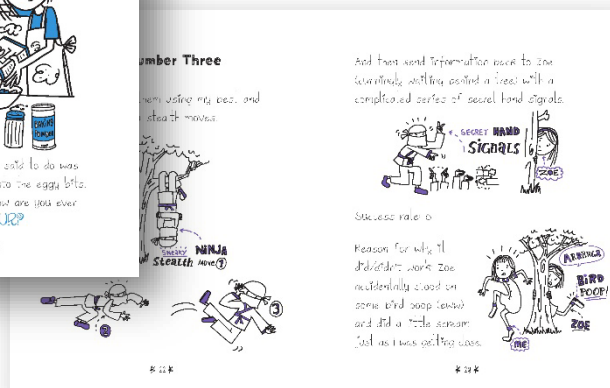 BAKING
POWDER
said to do was
to the eggy bits.
w are you ever
umber Three
hem using my best and
stealth moves.
SNEAKY NINJA
STEALTH MOVE 1
2
3
And then send information back to Zoe
(cunningly waiting behind a tree) with a
complicated series of secret hand signals.
SECRET HAND
SIGNALS
ZOE
Success rate: 0
Reason for why it
did/didn't work: Zoe
accidentally stood on
some bird poop (eww)
and did a little scream
just as I was getting close.
BIRD
POOP!
ZOE
ME